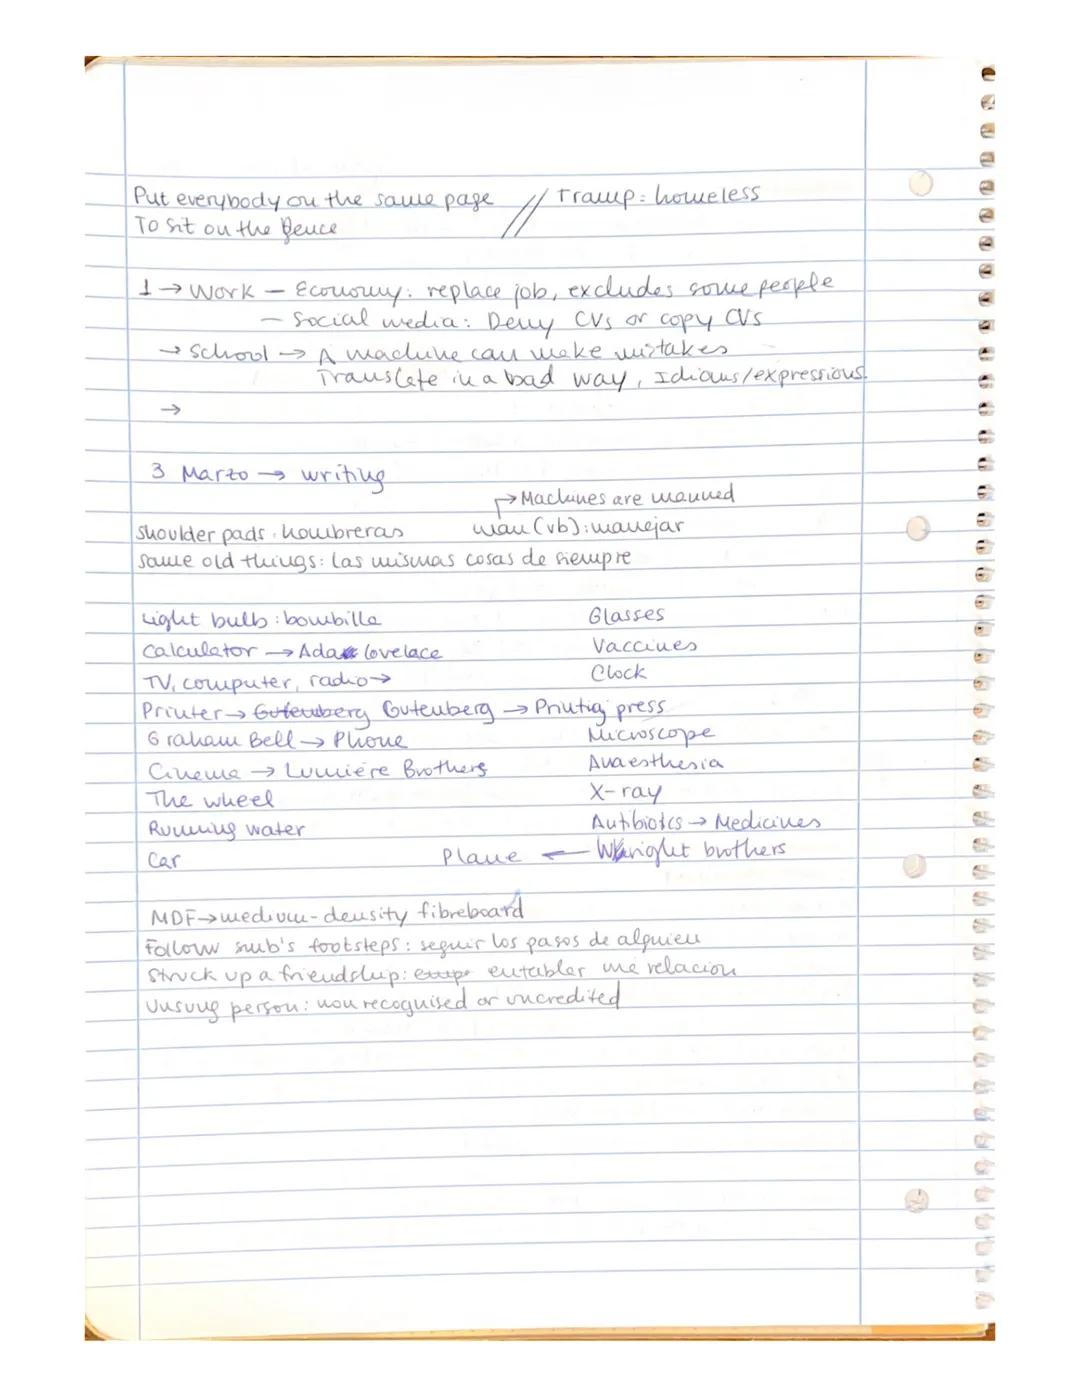 Put everybody on the same page // Tramp: homeless
To sit on the fence
1 → Work — Economy: replace job, excludes some people
— Social media: Deny CVs or copy CVs
→ School → A machine can make mistakes
Translate in a bad way, Idioms/expressions.
→
3 Marzo → writing
→ Machines are manned
shoulder pads: hombreras man (vb): manejar
same old things: las mismas cosas de siempre
Light bulb: bombilla Glasses
Calculator → Ada Lovelace Vaccines
TV, computer, radio → Clock
Printer → Gutemberg Gutenberg → Printig press
Graham Bell → Phone Microscope
Cinema → Lumière Brothers Anaesthesia
The wheel X-ray
Running water Antibiotcs → Medicines
Car Plane ← Wright brothers
MDF → medium-density fibreboard
Follow smb's footsteps: seguir los pasos de alguien
Struck up a friendship: entablar una relación
Unsung person: non recognised or uncredited